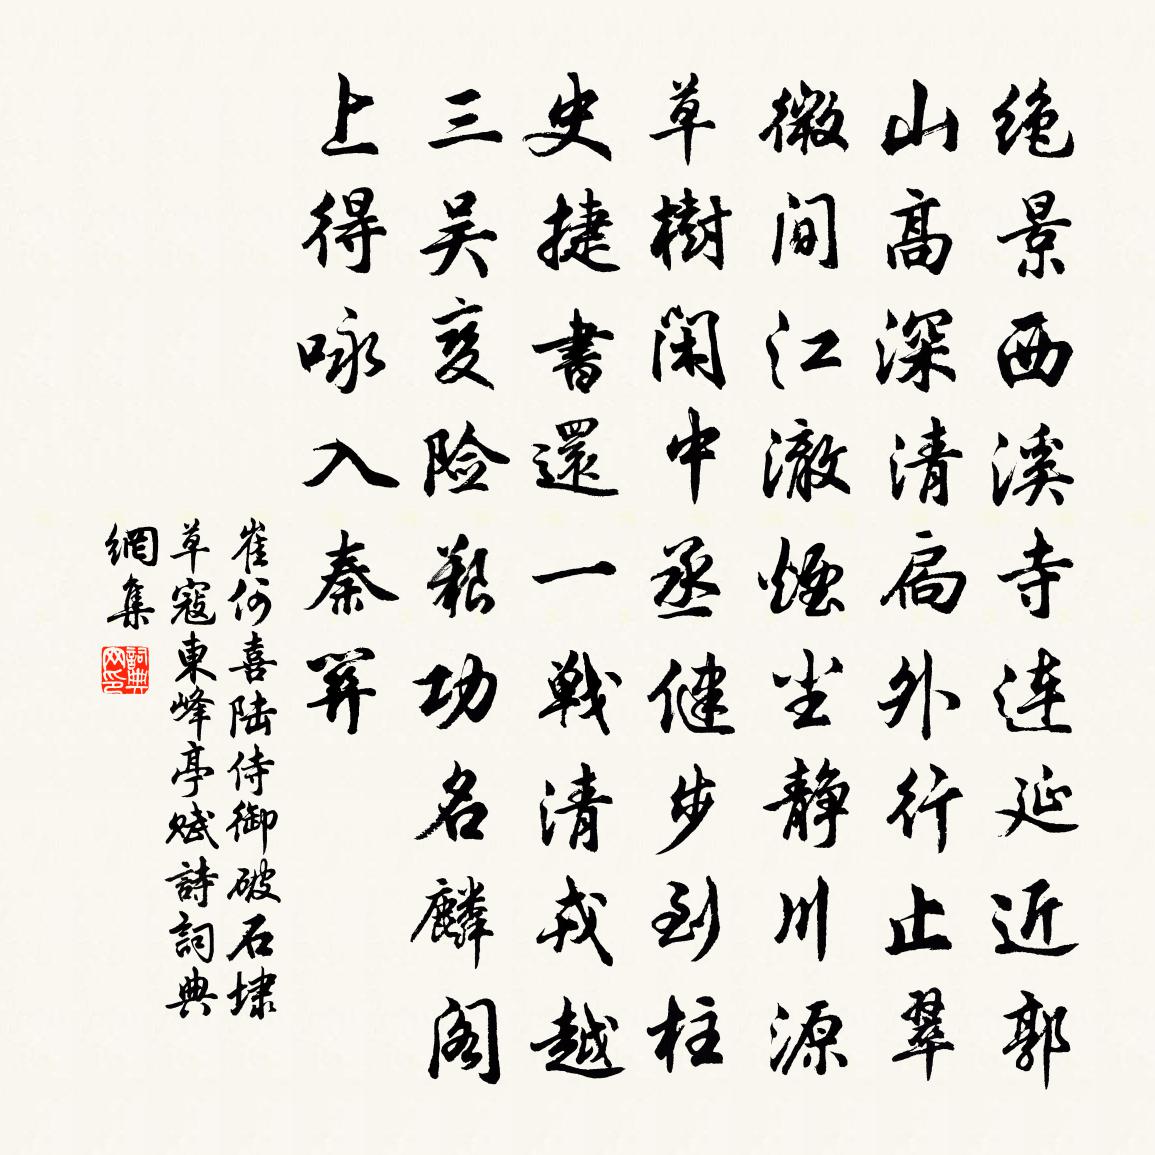 绝景西溪寺连延近郭
山高深清扃外行止翠
微间江澈煙尘静川源
草樹闲中丞健步到柱
史捷書還一戦清戎越
三吴变险艱功名麟阁
上得咏入秦関
崔何喜陆侍御破石埭
草寇東峰亭赋詩詞典
網集
詞典网印